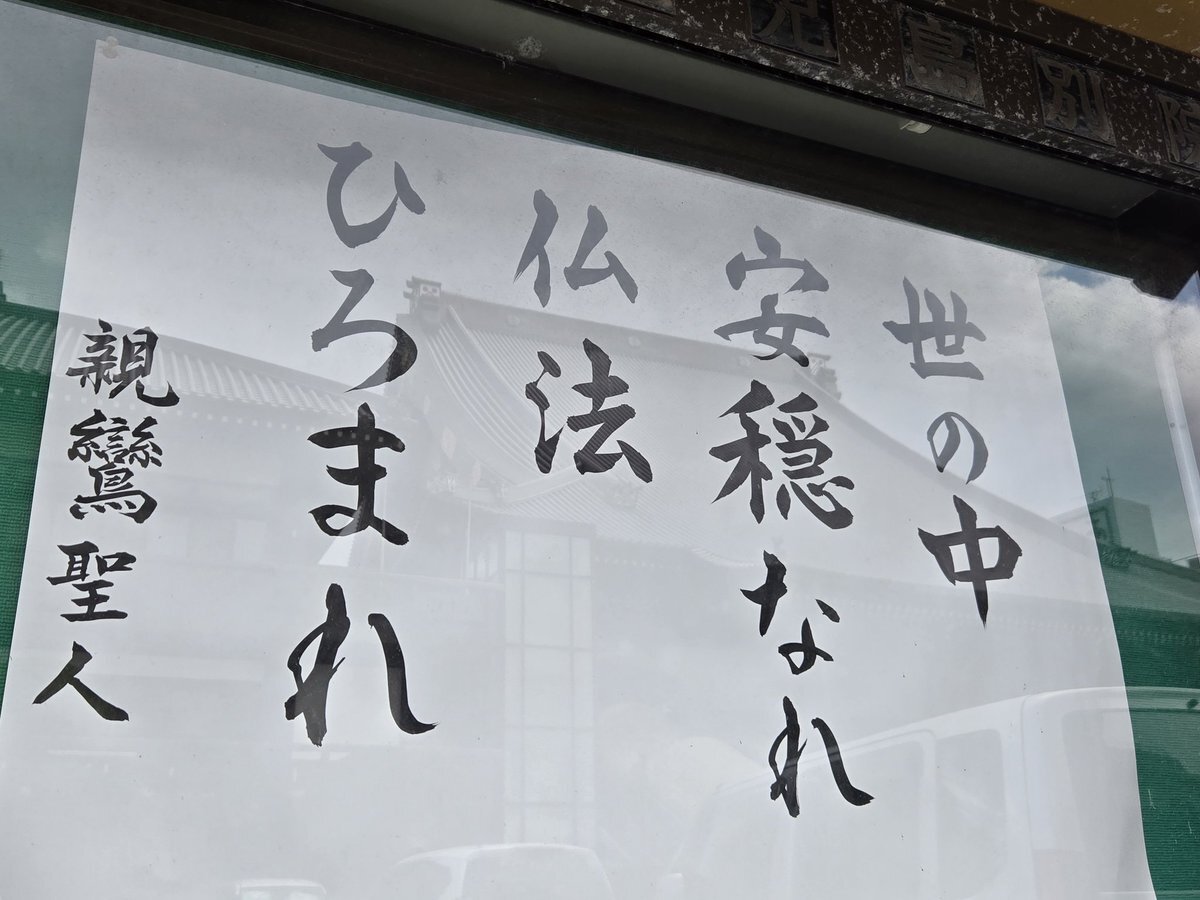 児島別院
世の中
安穏なれ
仏法
ひろまれ
親鸞聖人